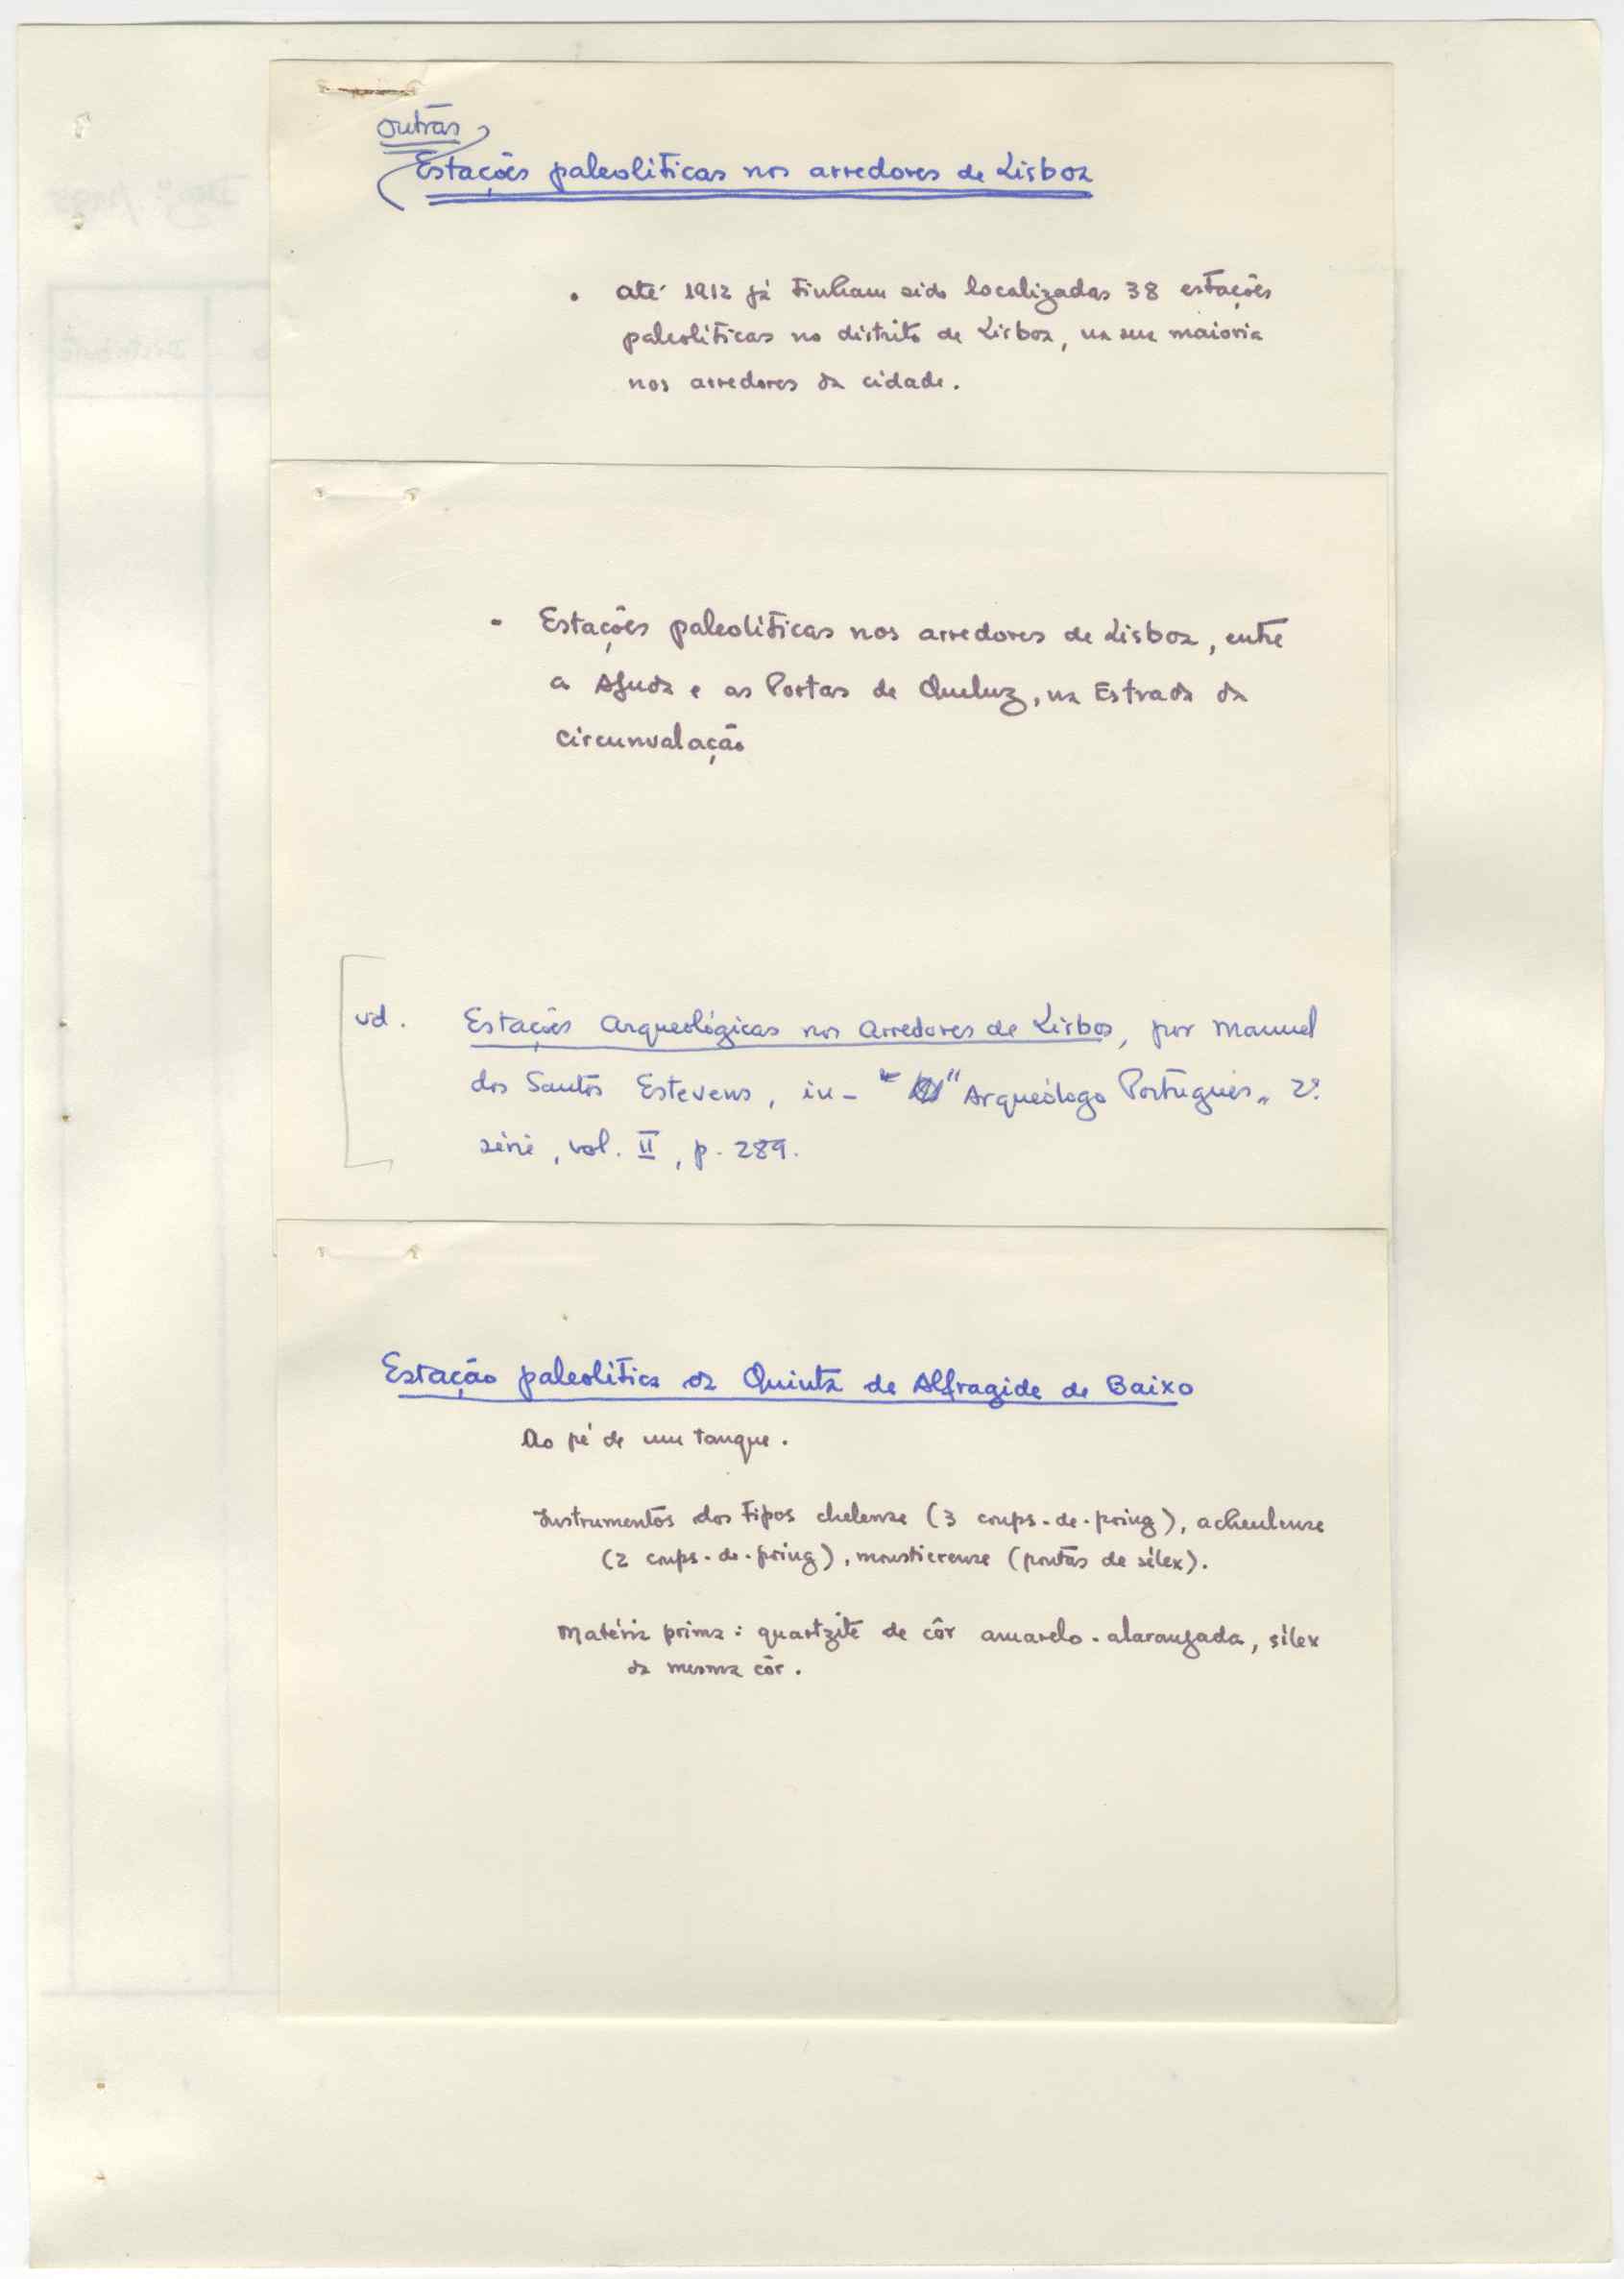 outras
Estações paleolíticas nos arredores de Lisboa
. até 1912 já tinham sido localizadas 38 estações
paleolíticas no distrito de Lisboa, na sua maioria
nos arredores da cidade.
- Estações paleolíticas nos arredores de Lisboa, entre
a Ajuda e as Portas de Queluz, na Estrada da
circunvalação
vd. Estações Arqueológicas nos Arredores de Lisboa, por Manuel
dos Santos Estevens, in- " " Arqueólogo Português„ 2ª
série, vol. II, p. 289.
Estação paleolítica da Quinta de Alfragide de Baixo
Ao pé de um tanque.
Instrumentos dos tipos chelense (3 coups-de-poing), acheulense
(2 coups-de-poing), moustierense (pontas de sílex).
Matéria prima: quartzite de côr amarelo-alaranjada, sílex
da mesma côr.